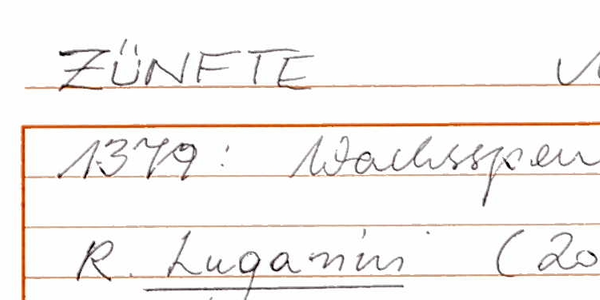 ZÜNFTE
1379: Wachsspen
R. Luganini (20